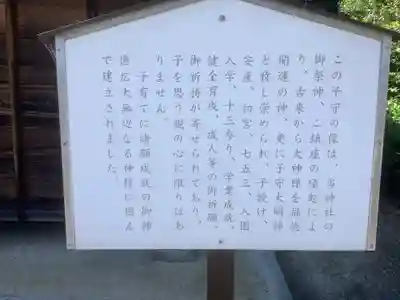 この子守の像は、当神社の
御祭神、二
り、古来から大神様を
開運の神、更に子守大明神
と称し崇められ、子授け、
安産、初宮、七五三、入園
入学、十三参り、学業成就、
健全育成、成人等の御祈願、
御祈祷が寄せられており、
子を思う親の心に限りはあ
りません。
子育てに諸願成就の御神
徳広大無辺なる神様に因ん
で建立されました。